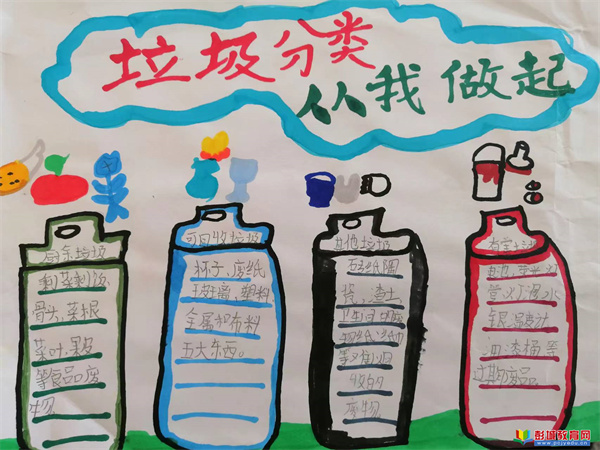 垃圾分类
从我做起
厨余垃圾
剩菜剩饭
骨头、菜根
菜叶、果皮
等食品废
物
可回收垃圾
杯子、废纸
玻璃、塑料
金属和布料
五大东西。
其他垃圾
砖纸陶
瓷、渣土
卫生间
纸、纸巾
等难以回
收的
废物
有害
电池、荧光灯
管、灯泡、水
银温度计
油漆桶等
过期药品
彭城教育网
www.pcjyedu.cn